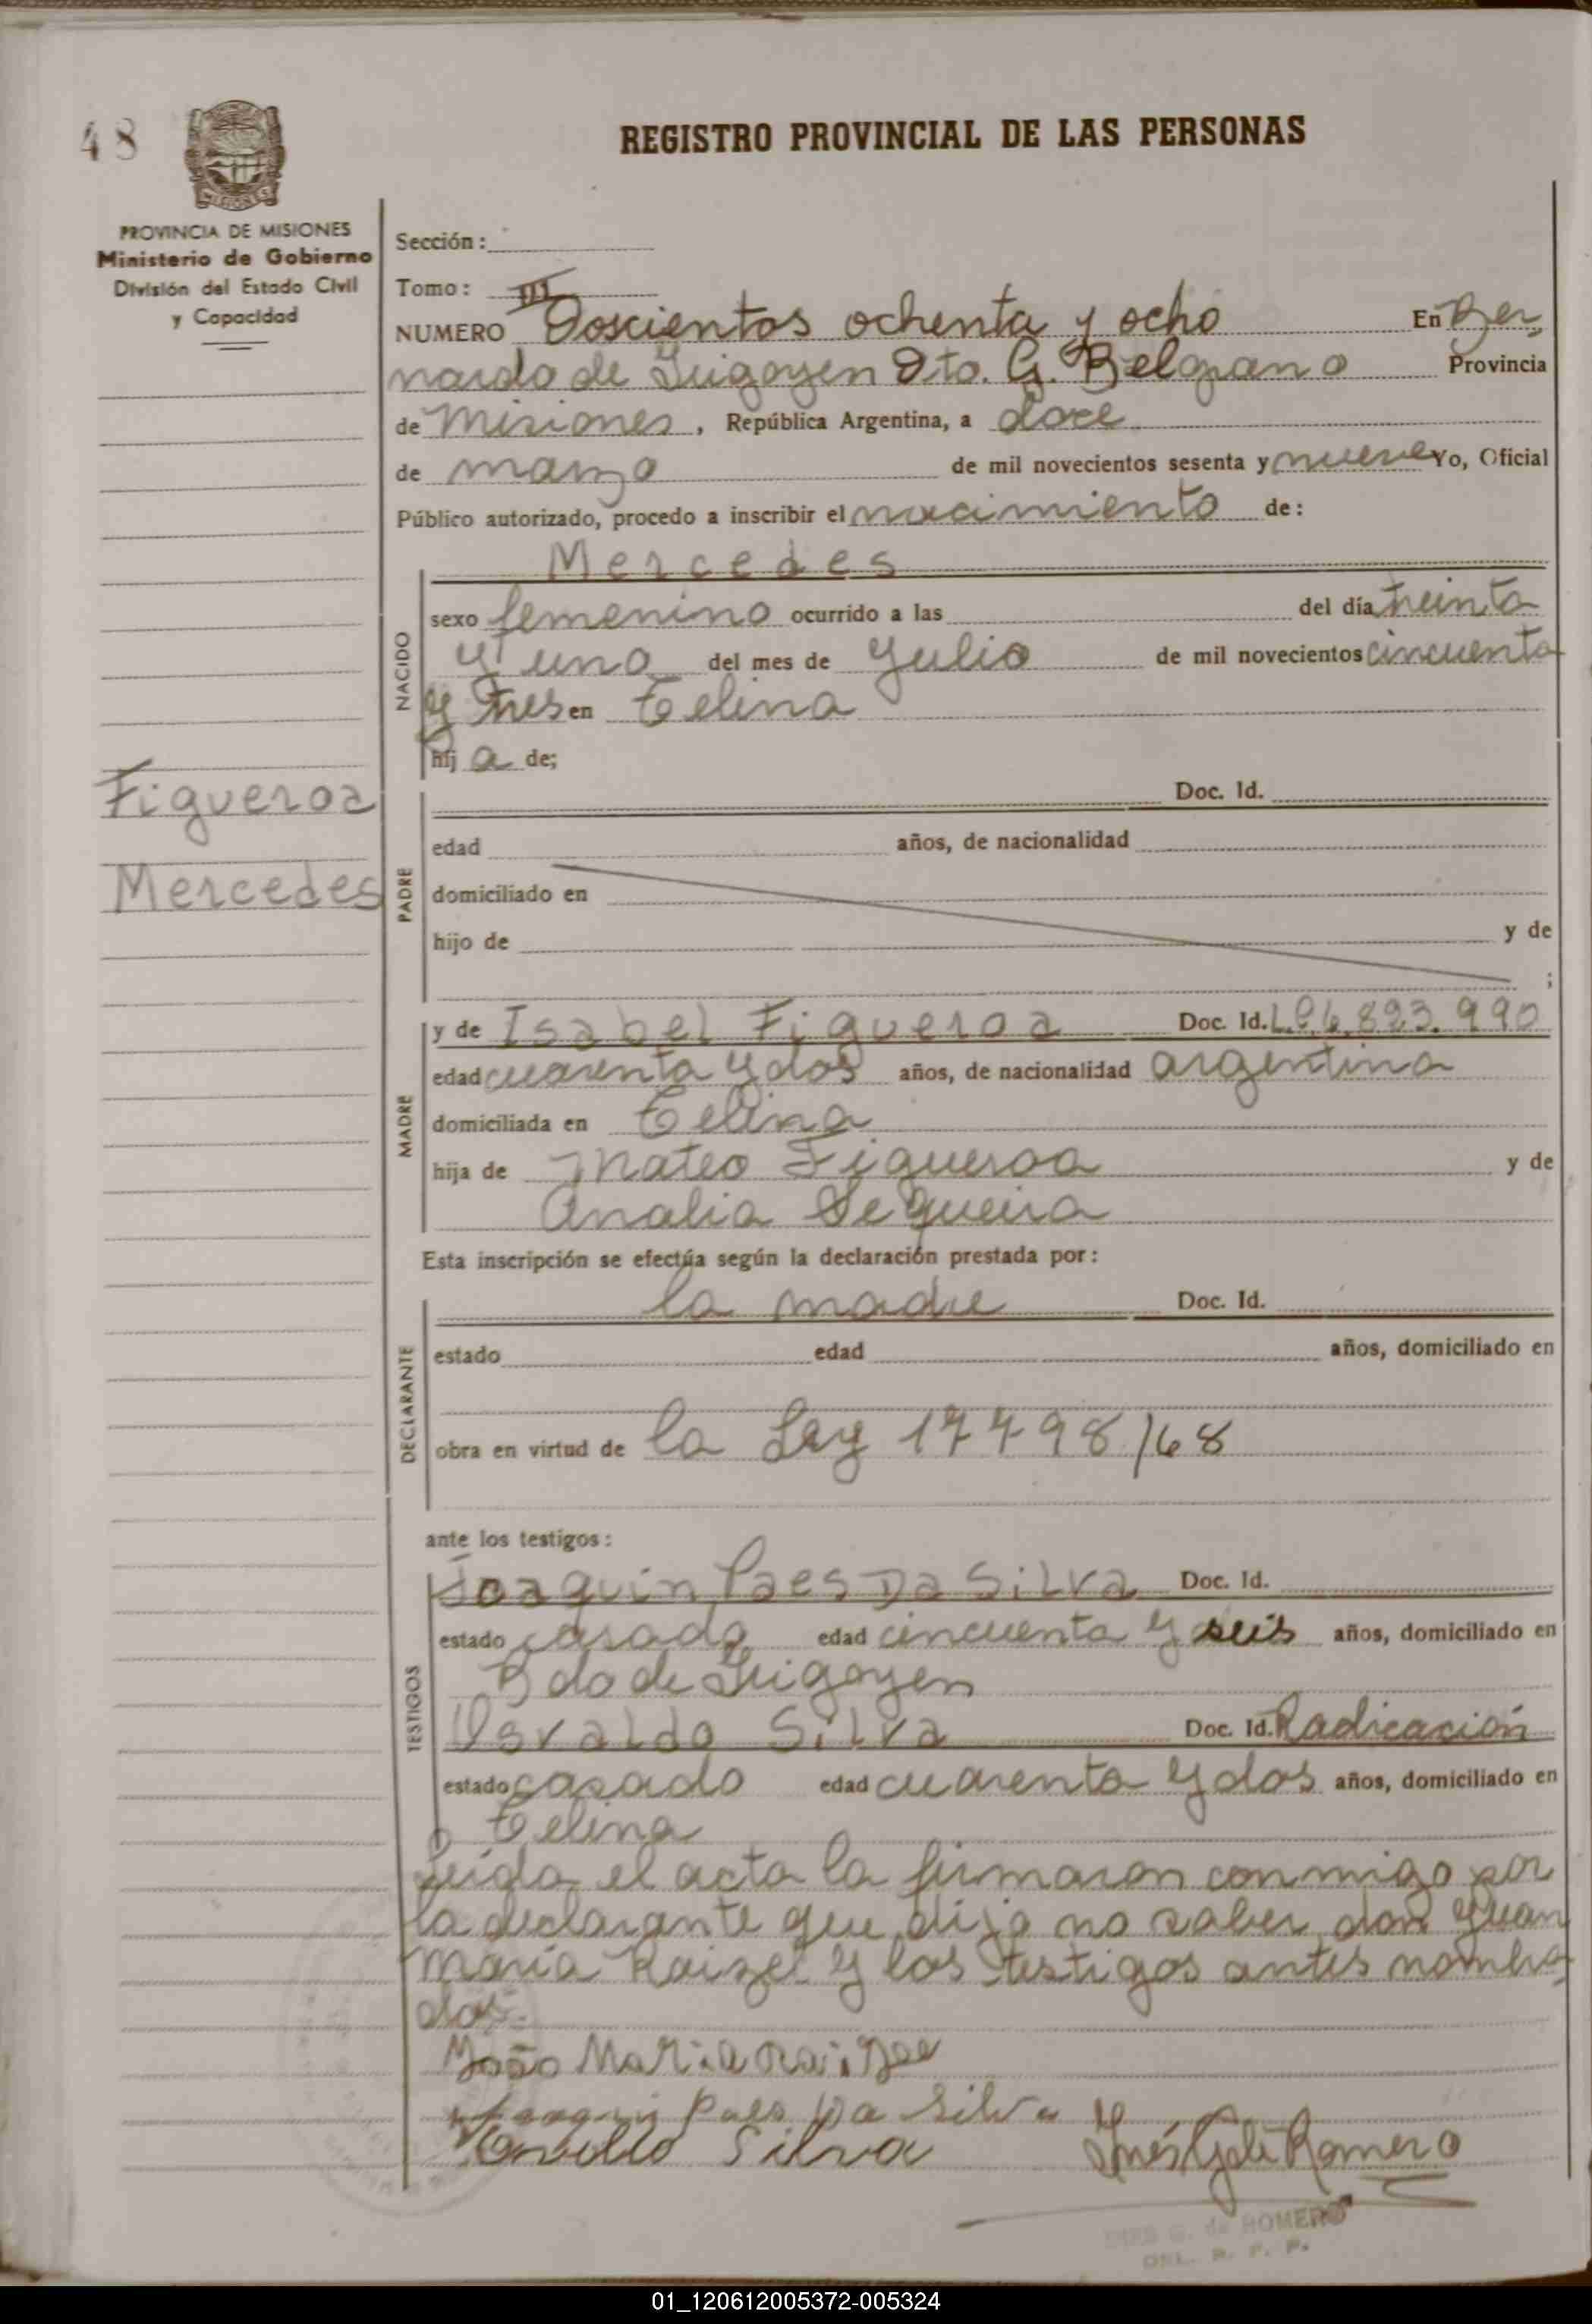 48
REGISTRO PROVINCIAL DE LAS PERSONAS
PROVINCIA DE MISIONES
Ministerio de Gobierno
División del Estado Civil
y Capacidad
Sección:
Tomo: III
NUMERO Doscientos ochenta y ocho En Ber,
nardo de Irigoyen Dto. G. Belgrano Provincia
de Misiones, República Argentina, a doce
de marzo de mil novecientos sesenta y nueve Yo, Oficial
Público autorizado, procedo a inscribir el nacimiento de:
NACIDO
Mercedes
sexo femenino ocurrido a las del día treinta
y uno del mes de Julio de mil novecientos cincuenta
y tres en Celina
hij a de;
Figueroa
Mercedes
PADRE
Doc. Id.
edad años, de nacionalidad
domiciliado en
hijo de y de
;
MADRE
y de Isabel Figueroa Doc. Id. L.C. 6.823.990
edad cuarenta y dos años, de nacionalidad argentina
domiciliada en Celina
hija de Mateo Figueroa y de
Analia Sequeira
Esta inscripción se efectúa según la declaración prestada por:
DECLARANTE
la madre Doc. Id.
estado edad años, domiciliado en
obra en virtud de la Ley 17798/68
ante los testigos:
TESTIGOS
Joaquin Paes Da Silva Doc. Id.
estado casado edad cincuenta y seis años, domiciliado en
Bdo de Irigoyen
Osvaldo Silva Doc. Id. Radicación
estado casado edad cuarenta y dos años, domiciliado en
Celina
Leída el acta la firmaron conmigo por
la declarante que dijo no saber, don Juan
María Raizel y los testigos antes nombra
dos.
João Maria
Joaquin Paes Da Silva
Osvaldo Silva
Inés G. de Romero
INES G. de ROMERO
DEL. R. P. P.
01_120612005372-005324